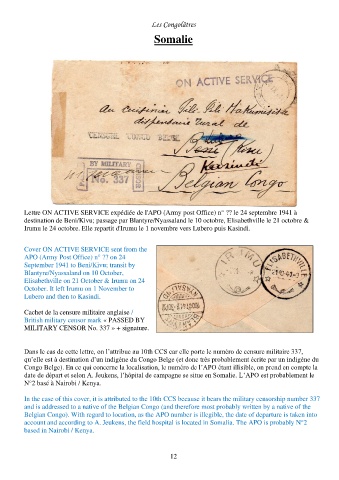 Les Congolâtres
Somalie
ON ACTIVE SERVICE
Au cuisinier Pili-Pili
dispensaire rural de
CENSURE CONGO BELGE
Beni (Kivu)
BY MILITARY
No. 337
Kasindi
Belgian Congo
Lettre ON ACTIVE SERVICE expédiée de l'APO (Army post Office) n° ?? le 24 septembre 1941 à
destination de Beni/Kivu; passage par Blantyre/Nyassaland le 10 octobre, Elisabethville le 21 octobre &
Irumu le 24 octobre. Elle repartit d'Irumu le 1 novembre vers Lubero puis Kasindi.
Cover ON ACTIVE SERVICE sent from the
APO (Army Post Office) n° ?? on 24
September 1941 to Beni/Kivu; transit by
Blantyre/Nyassaland on 10 October,
Elisabethville on 21 October & Irumu on 24
October. It left Irumu on 1 November to
Lubero and then to Kasindi.
Cachet de la censure militaire anglaise /
British military censor mark « PASSED BY
MILITARY CENSOR No. 337 » + signature.
IRUMU
ELISABETHVILLE
Dans le cas de cette lettre, on l'attribue au 10th CCS car elle porte le numéro de censure militaire 337,
qu'elle est à destination d'un indigène du Congo Belge (et donc très probablement écrite par un indigène du
Congo Belge). En ce qui concerne la localisation, le numéro de l'APO étant illisible, on prend en compte la
date de départ et selon A. Jeukens, l'hôpital de campagne se situe en Somalie. L'APO est probablement le
N°2 basé à Nairobi / Kenya.
In the case of this cover, it is attributed to the 10th CCS because it bears the military censorship number 337
and is addressed to a native of the Belgian Congo (and therefore most probably written by a native of the
Belgian Congo). With regard to location, as the APO number is illegible, the date of departure is taken into
account and according to A. Jeukens, the field hospital is located in Somalia. The APO is probably N°2
based in Nairobi / Kenya.
12